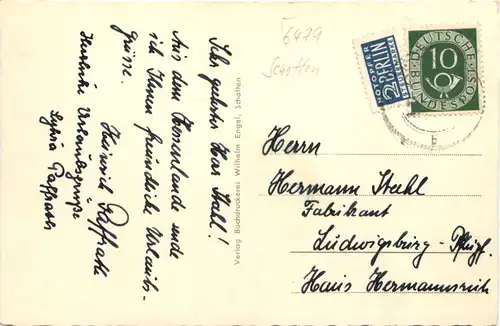 Sehr geehrter Herr Stahl!
Aus dem Hessenlande sende
ich Ihnen freundliche Urlaubs-
Grüsse.
Heinrich Paffrath
Herzliche Urlaubsgrüße
Sylvia Paffrath
Verlag Buchdruckerei Wilhelm Engel, Schotten
6479
Schotten
NOTOPFER
2 BERLIN
STEUERMARKE
DEUTSCHE BUNDESPOST
10
Herrn
Hermann Stahl
Fabrikant
Ludwigsburg - Pflugf.
Haus Hermannsruh